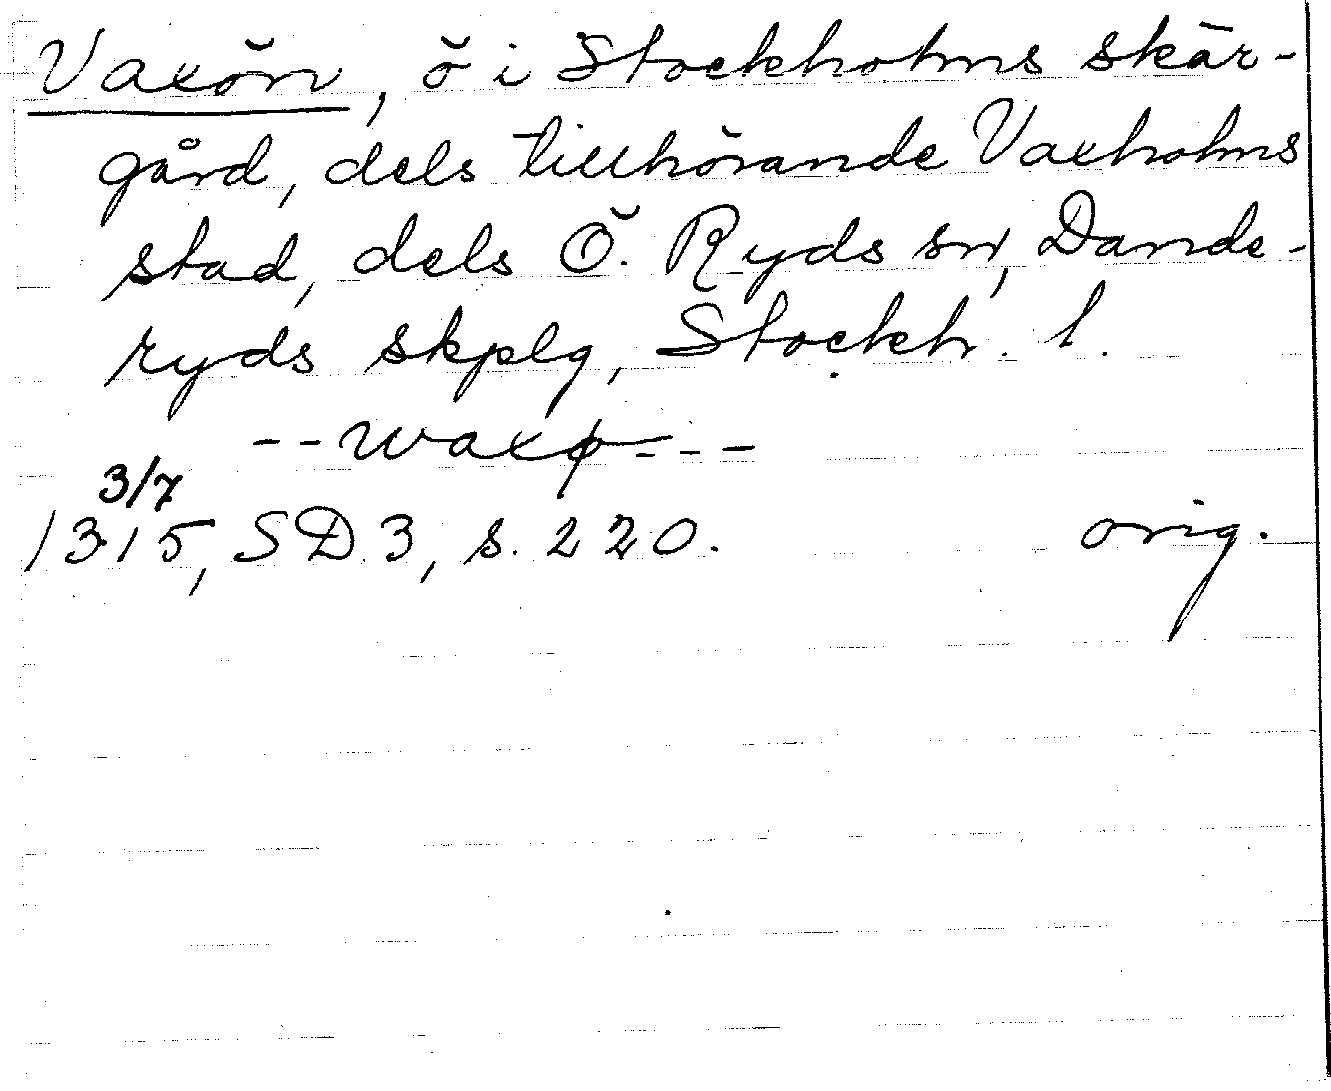 Vaxön, ö i Stockholms skär-
gård, dels tillhörande Vaxholms
stad, dels Ö. Ryds sn, Dande-
ryds skplg, Stockh. l.
-- waxø ---
3/7
1315, SD 3, s. 220. orig.